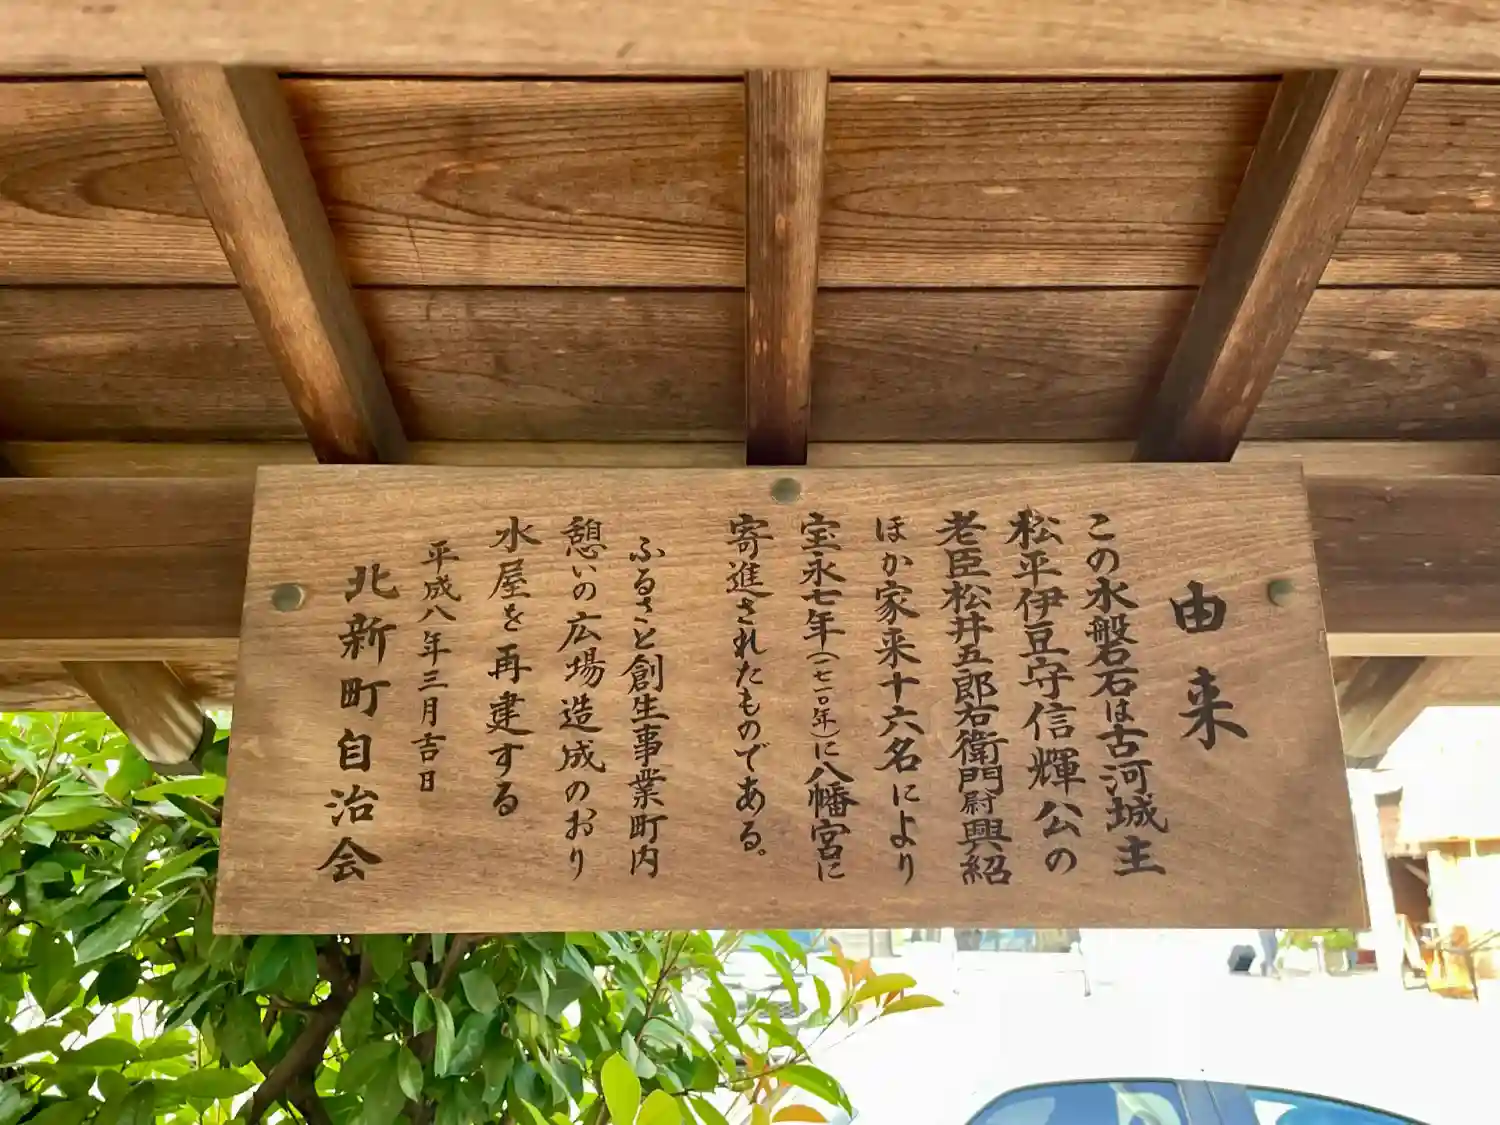 由来
この水盤石は古河城主
松平伊豆守信輝公の
老臣松井五郎右衛門尉興紹
ほか家来十六名により
宝永七年(一七一〇年)に八幡宮に
寄進されたものである。
ふるさと創生事業町内
憩いの広場造成のおり
水屋を再建する
平成八年三月吉日
北新町自治会